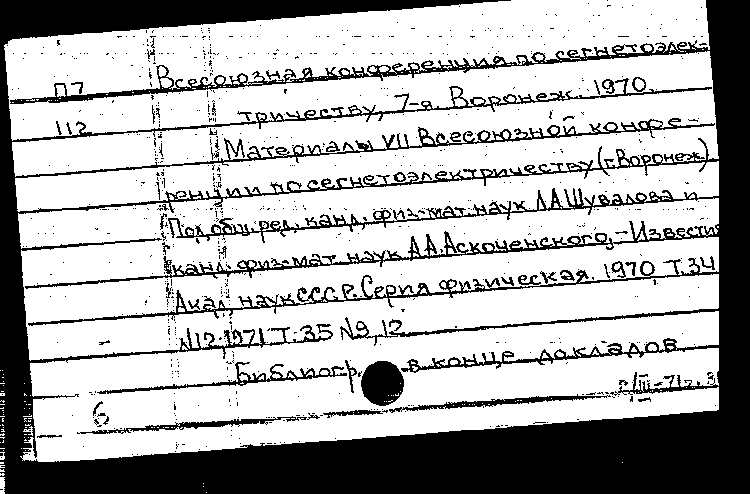 П7 Всесоюзная конференция по сегнетоэлек-
112 тричеству, 7-я. Воронеж. 1970.
Материалы VII Всесоюзной конфе-
ренции по сегнетоэлектричеству (г. Воронеж).
Под общ. ред. канд. физ-мат. наук Л.А. Шувалова и
канд. физ-мат. наук А.А. Аскоченского. - Известия
Акад. наук СССР. Серия физическая. 1970, Т.34
N12; 1971 Т.35 N9, 12.
Библиогр. в конце докладов.
6